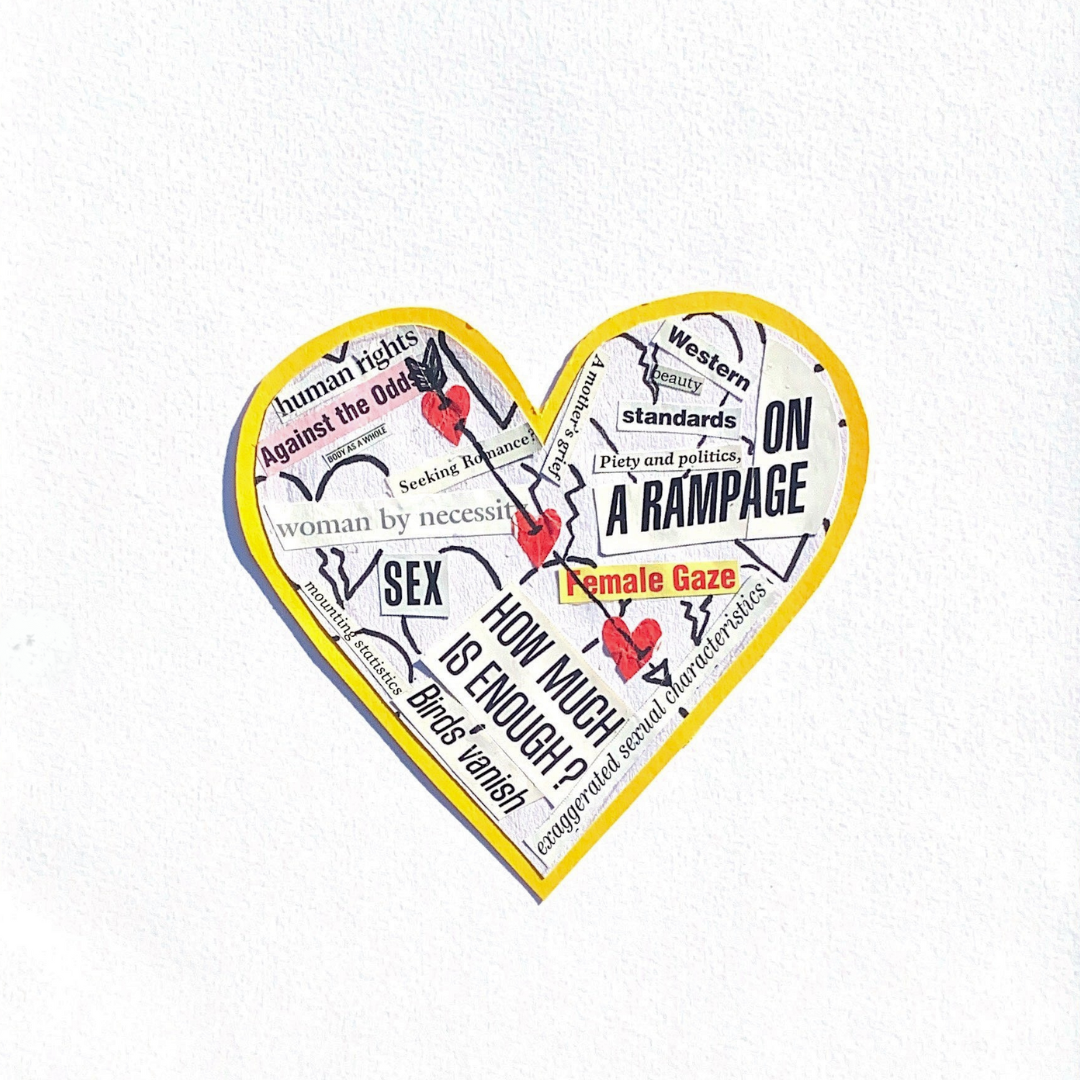 human rights
Against the Odds
BODY AS A WHOLE
Seeking Romance?
woman by necessity
SEX
mounting statistics
Birds vanish
HOW MUCH
IS ENOUGH?
A mother's grief
Western
beauty
standards
Piety and politics,
ON
A RAMPAGE
Female Gaze
exaggerated sexual characteristics